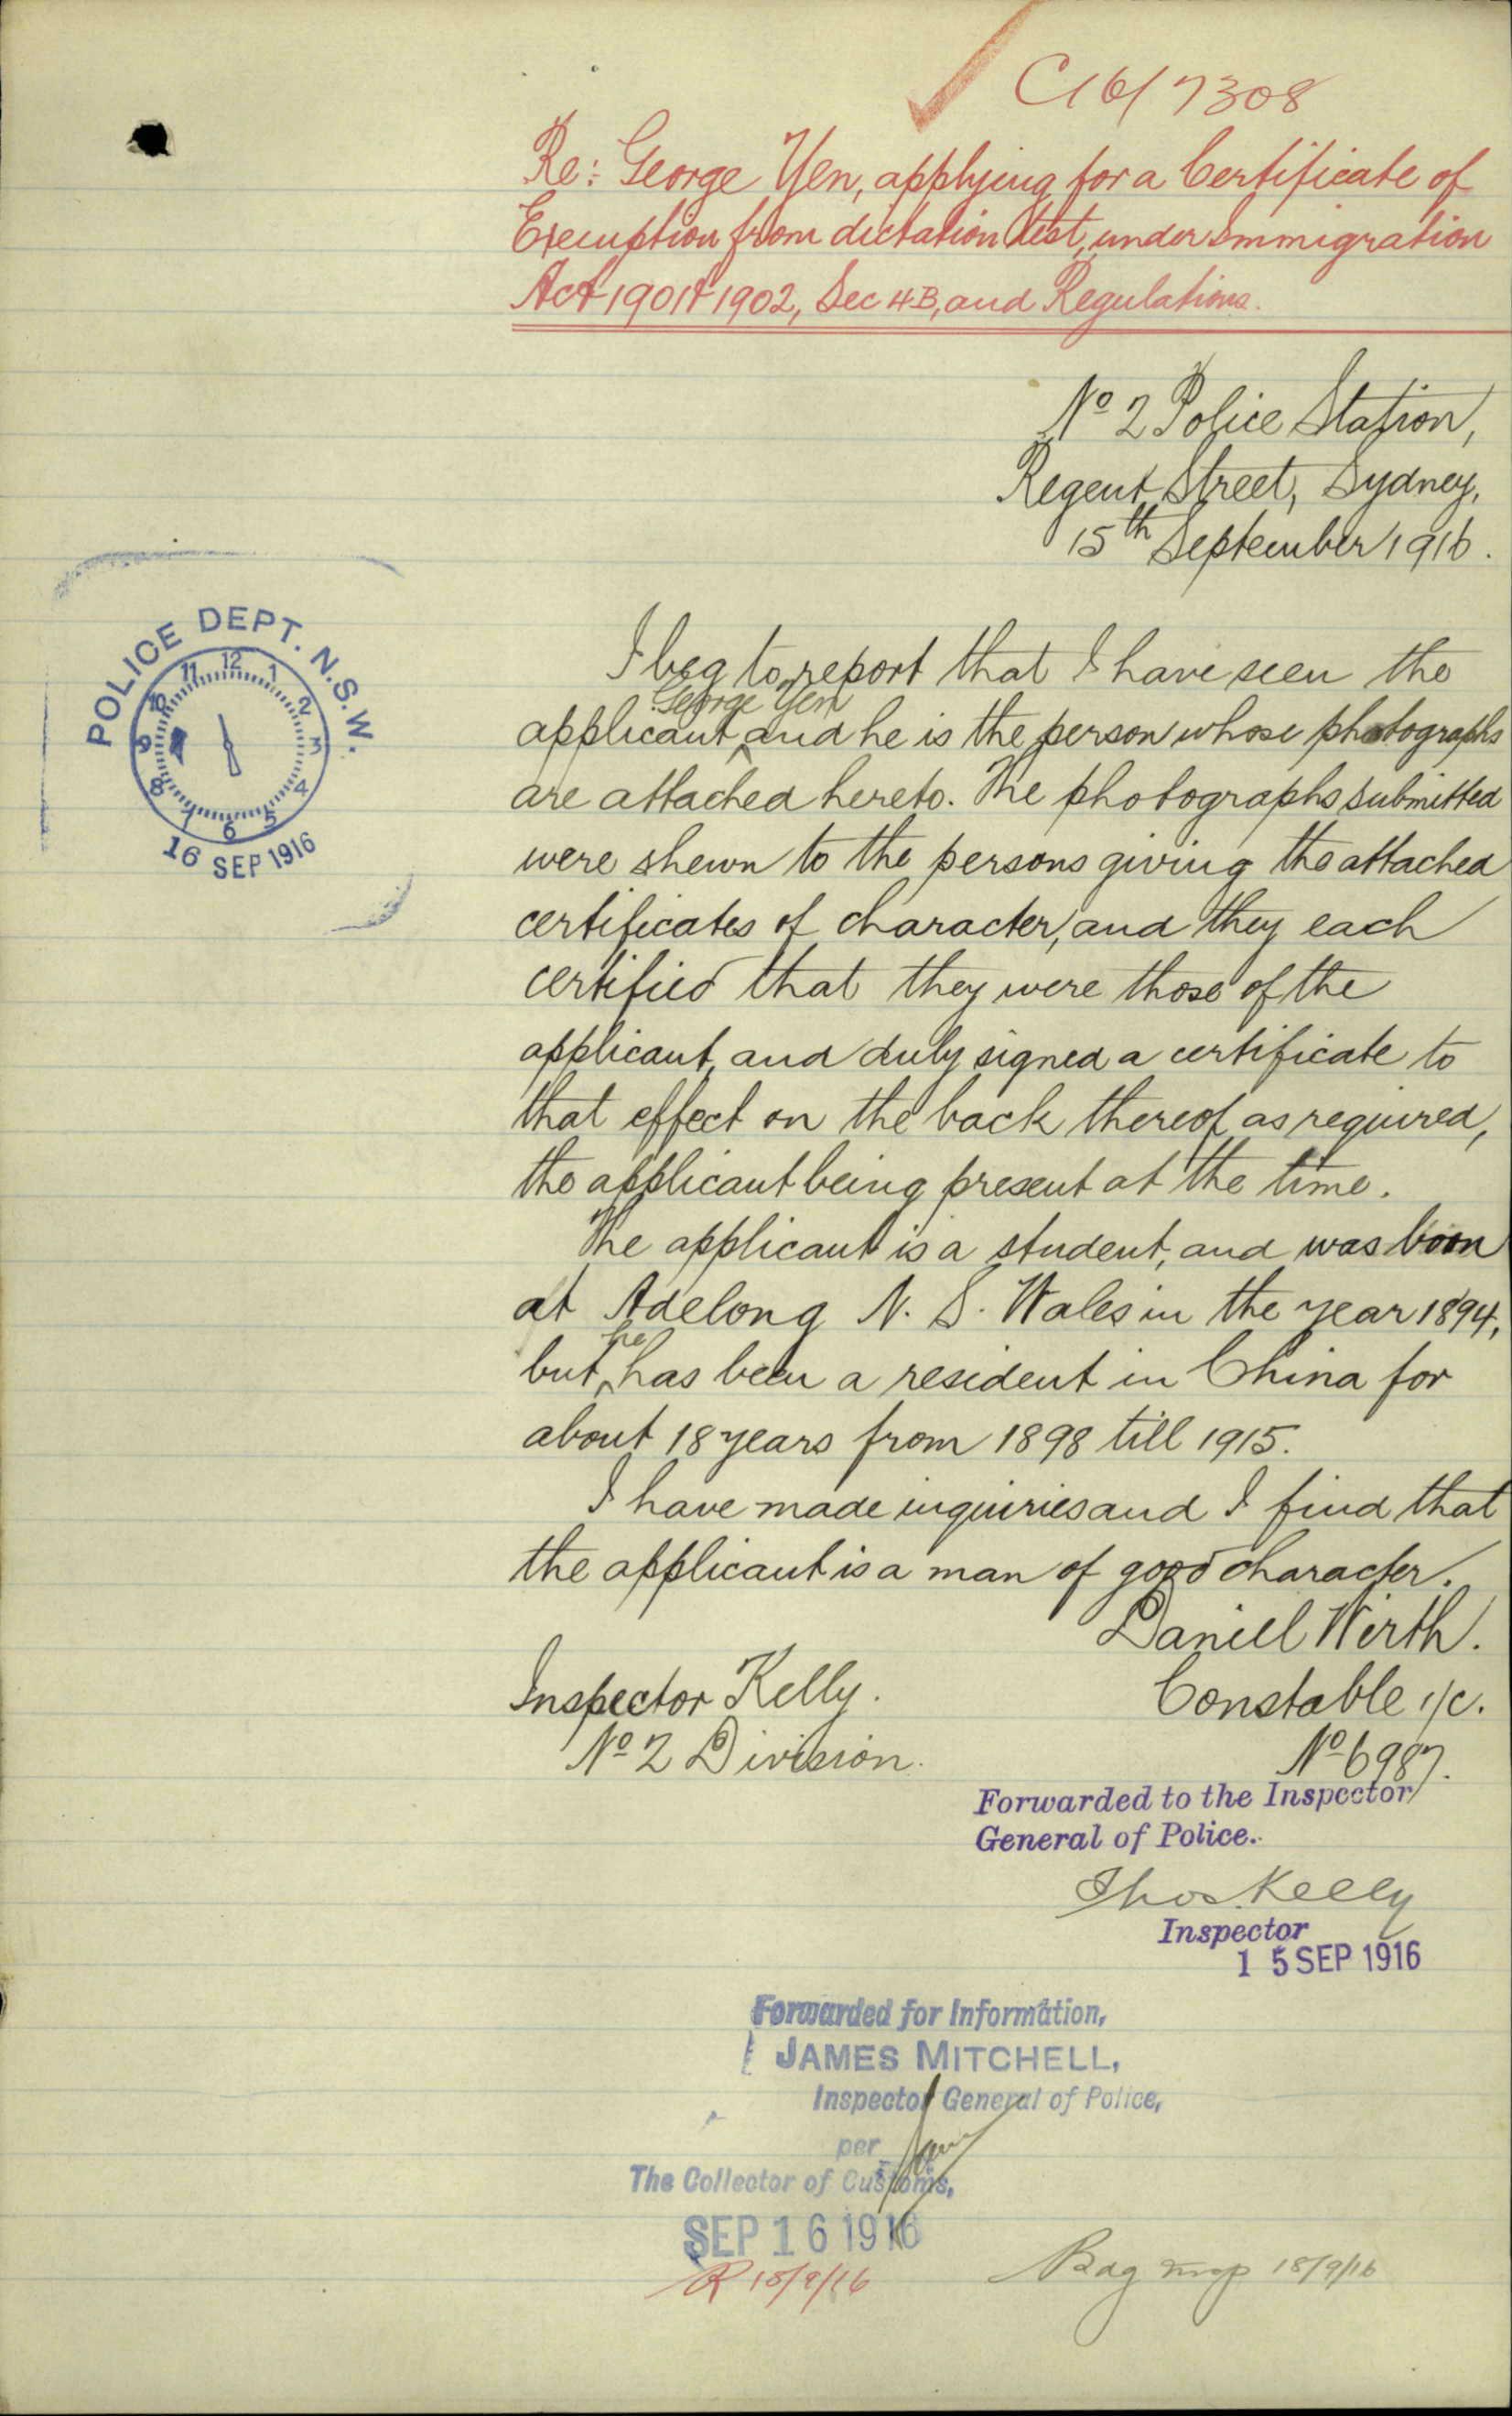 C16/7308
Re: George Yen, applying for a Certificate of
Exemption from dictation test, under Immigration
Act 1901 & 1902, Sec 4B, and Regulations.
No 2 Police Station,
Regent Street, Sydney,
15th September 1916.
POLICE DEPT. N.S.W.
12 1 2 3 4 5 6 7 8 9 10 11
16 SEP 1916
I beg to report that I have seen the
George Yen
applicant ^ and he is the person whose photographs
are attached hereto. The photographs submitted
were shewn to the persons giving the attached
certificates of character, and they each
certified that they were those of the
applicant, and duly signed a certificate to
that effect on the back thereof as required,
the applicant being present at the time.
The applicant is a student, and was born
at Adelong N. S. Wales in the year 1894,
he
but ^ has been a resident in China for
about 18 years from 1898 till 1915.
I have made inquiries and I find that
the applicant is a man of good character.
Daniel Wirth.
Constable 1/c.
No 6987.
Inspector Kelly.
No 2 Division.
Forwarded to the Inspector
General of Police.
Thos. Kelly
Inspector
15 SEP 1916
Forwarded for Information,
JAMES MITCHELL,
Inspector General of Police,
per
The Collector of Customs,
SEP 16 1916
18/9/16